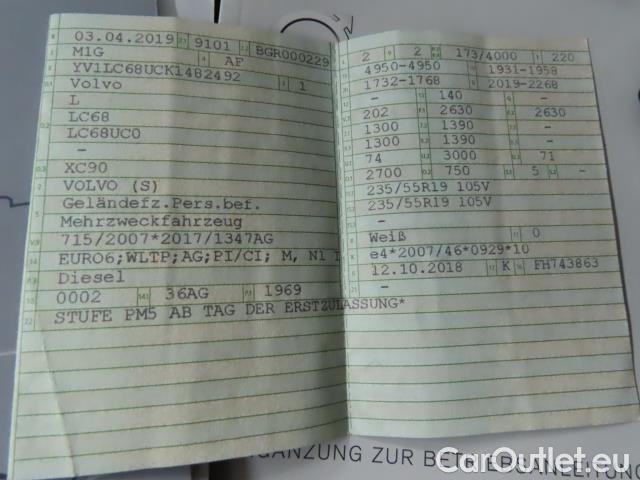 03.04.2019 9101 BGR000229
M1G AF
YV1LC68UCK1482492
Volvo 1
L
LC68
LC68UC0
-
XC90
VOLVO (S)
Geländefz.Pers.bef.
Mehrzweckfahrzeug
715/2007*2017/1347AG
EURO6;WLTP;AG;PI/CI; M, N1 I
Diesel
0002 36AG 1969
STUFE PM5 AB TAG DER ERSTZULASSUNG*
2 2 173/4000 220
4950-4950 1931-1958
1732-1768 2019-2268
- 140 -
202 2630 2630
1300 1390 -
1300 1390 -
74 3000 71
2700 750 5 -
235/55R19 105V
235/55R19 105V
-
Weiß 0
e4*2007/46*0929*10
12.10.2018 K FH743863
-
ERGÄNZUNG ZUR BETRIEBSANLEITUNG
CarOutlet.eu